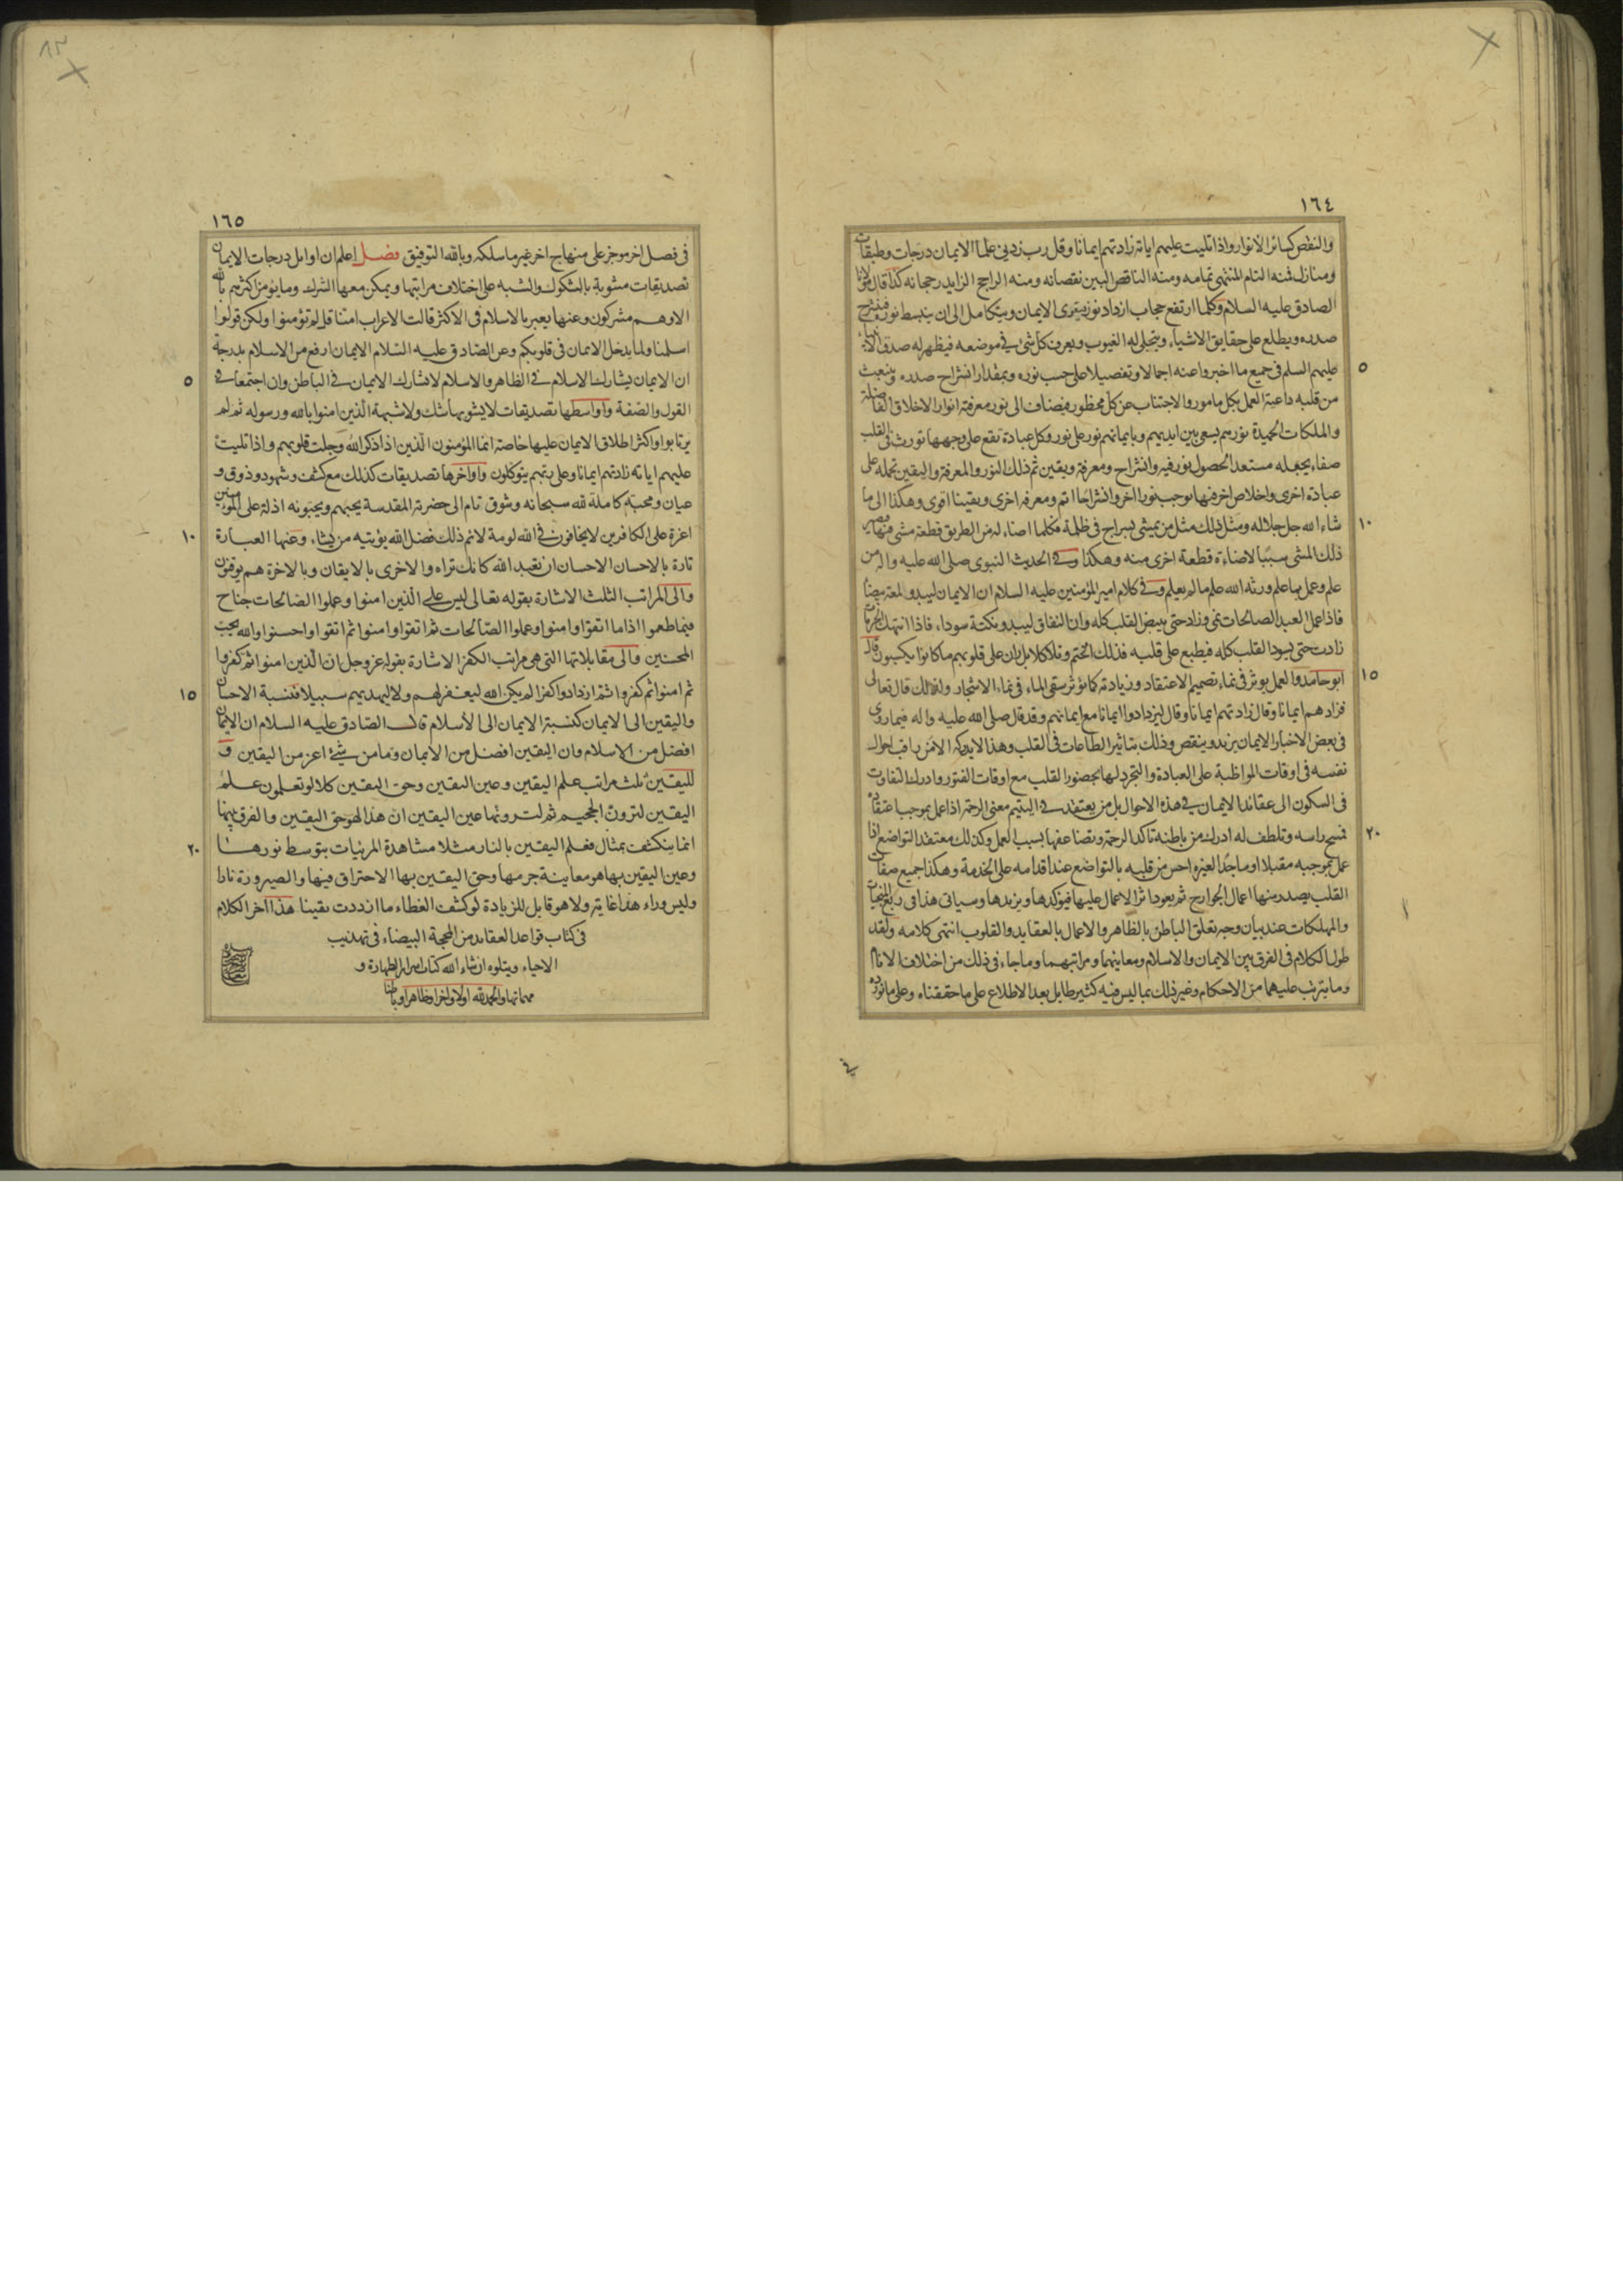 ١٦٤
والنقص كسائر الانوار واذا تليت عليهم اياته زادتهم ايمانا وقل رب زدنى علما الايمان درجات وطبقات
ومنازل فمنه التام المنتهى تمامه ومنه الناقص البين نقصانه ومنه الراجح الزايد رجحانه كذا قال مولانا
الصادق عليه السلام وكلما ارتفع حجاب ازداد نور فيقوى الايمان ويتكامل الى ان ينبسط نوره فينشرح
صدره ويطلع على حقايق الاشياء ويتجلى له الغيوب ويعرف كل شئ فى موضعه فيظهر له صدق الانبياء
٥
عليهم السلم فى جميع ما اخبروا عنه اجمالا وتفصيلا على حسب نوره وبمقدار انشراح صدره وينبعث
من قلبه داعية العمل بكل مامور والاجتناب عن كل محظور فيضاف الى نور معرفته انوار الاخلاق الفاضلة
والملكات الحميدة نورهم يسعى بين ايديهم وبايمانهم نور على نور وكل عبادة تقع على وجهها تورث فى القلب
صفاء يجعله مستعدا لحصول نور فيه وانشراح ومعرفة ويقين ثم ذلك النور والمعرفة واليقين تحمله على
عبادة اخرى واخلاص اخر فيها يوجب نورا اخر وانشراحا اتم ومعرفة اخرى ويقينا اقوى وهكذا الى ما
١٠
شاء الله جل جلاله ومثل ذلك مثل من يمشى بسراج فى ظلمة فكلما اضاء له من الطريق قطعة مشى فيها فيصير
ذلك المشى سببا لاضاءة قطعة اخرى منه وهكذا وفى الحديث النبوى صلى الله عليه واله من
علم وعمل بما علم ورثه الله علم ما لم يعلم وفى كلام امير المؤمنين عليه السلام ان الايمان ليبدو لمعة بيضاء
فاذا عمل العبد الصالحات نمى وزاد حتى يبيض القلب كله وان النفاق ليبدو نكتة سوداء فاذا انتهك الحرمات
زادت حتى يسود القلب كله فيطبع على قلبه فذلك الختم وتلا كلا بل ران على قلوبهم ما كانوا يكسبون قال
١٥
ابو حامد والعمل يوثر فى نماء تصميم الاعتقاد وزيادته كما يؤثر سقى الماء فى نماء الاشجار ولذلك قال تعالى
فزادهم ايمانا وقال زادتهم ايمانا وقال ليزدادوا ايمانا مع ايمانهم وقد قال صلى الله عليه واله فيما روى
فى بعض الاخبار الايمان يزيد وينقص وذلك بتاثير الطاعات فى القلب وهذا لا يدركه الا من راقب احوال
نفسه فى اوقات المواظبة على العبادة والتجرد لها بحضور القلب مع اوقات الفتور وادراك التفاوت
فى السكون الى عقائد الايمان فى هذه الاحوال بل من يعتقد فى اليتيم معنى الرحمة اذا عمل بموجب اعتقاده
٢٠
فمسح راسه وتلطف له ادرك من باطنه تاكد الرحمة وتضاعفها بسبب العمل وكذلك معتقد التواضع اذا
عمل بموجبه مقبلا او ساجدا لغيره احس من قلبه بالتواضع عند اقدامه على الخدمة وهكذا جميع صفات
القلب يصدر منها اعمال الجوارح ثم يعود اثر الاعمال عليها فيؤكدها ويزيدها وسياتى هذا فى ربع المنجيات
والمهلكات عند بيان وجه تعلق الباطن بالظاهر والاعمال بالعقايد والقلوب انتهى كلامه ولقد
طول الكلام فى الفرق بين الايمان والاسلام ومعاينهما ومراتبهما وما جاء فى ذلك من اختلاف الانام
وما يترتب عليهما من الاحكام وغير ذلك بما ليس فيه كثير طايل بعد الاطلاع على ما حققناه وعلى ما نورده
١٦٥
فى فصل اخر موجز على منهاج اخر غير ما سلكه وبالله التوفيق فصل اعلم ان اوايل درجات الايمان
تصديقات مشوبة بالشكوك والشبه على اختلاف مراتبها ويمكن معها الشرك وما يؤمن اكثرهم بالله
الا وهم مشركون وعنها يعبر بالاسلام فى الاكثر قالت الاعراب امنا قل لم تؤمنوا ولكن قولوا
اسلمنا ولما يدخل الايمان فى قلوبكم وعن الصادق عليه السلام الايمان ارفع من الاسلام بدرجة
٥
ان الايمان يشارك الاسلام فى الظاهر والاسلام لا يشارك الايمان فى الباطن وان اجتمعا فى
القول والصفة واواسطها تصديقات لا يشوبها شك ولا شبهة الذين امنوا بالله ورسوله ثم لم
يرتابوا واكثر اطلاق الايمان عليها خاصة انما المؤمنون الذين اذا ذكر الله وجلت قلوبهم واذا تليت
عليهم اياته زادتهم ايمانا وعلى ربهم يتوكلون واواخرها تصديقات كذلك مع كشف وشهود وذوق و
عيان ومحبة كاملة لله سبحانه وشوق تام الى حضرته المقدسة يحبهم ويحبونه اذلة على المؤمنين
١٠
اعزة على الكافرين لا يخافون فى الله لومة لائم ذلك فضل الله يؤتيه من يشاء وعنها العبارة
تارة بالاحسان الاحسان ان تعبد الله كانك تراه والاخرى بالايقان وبالاخرة هم يوقنون
والى المراتب الثلث الاشارة بقوله تعالى ليس على الذين امنوا وعملوا الصالحات جناح
فيما طعموا اذا ما اتقوا وامنوا وعملوا الصالحات ثم اتقوا وامنوا ثم اتقوا واحسنوا والله يحب
المحسنين والى مقابلاتها التى هى مراتب الكفر الاشارة بقوله عز وجل ان الذين امنوا ثم كفروا
١٥
ثم امنوا ثم كفروا ثم ازدادوا كفرا لم يكن الله ليغفر لهم ولا ليهديهم سبيلا فنسبة الاحسان
واليقين الى الايمان كنسبة الايمان الى الاسلام قال الصادق عليه السلام ان الايمان
افضل من الاسلام وان اليقين افضل من الايمان وما من شئ اعز من اليقين و
لليقين ثلث مراتب علم اليقين وعين اليقين وحق اليقين كلا لو تعلمون علم
اليقين لترون الجحيم ثم لترونها عين اليقين ان هذا لهو حق اليقين والفرق بينها
٢٠
انما ينكشف بمثال فعلم اليقين بالنار مثلا مشاهدة المرئيات بتوسط نورها
وعين اليقين بها هو معاينة جرمها وحق اليقين بها الاحتراق فيها والصيرورة نارا
وليس وراء هذا غاية ولا هو قابل للزيادة لو كشف الغطاء ما ازددت يقينا هذا اخر الكلام
فى كتاب قواعد العقايد من المحجة البيضاء فى تهذيب
الاحياء ويتلوه ان شاء الله كتاب اسرار الطهارة و
مهماتها والحمد لله اولا واخرا وظاهرا وباطنا